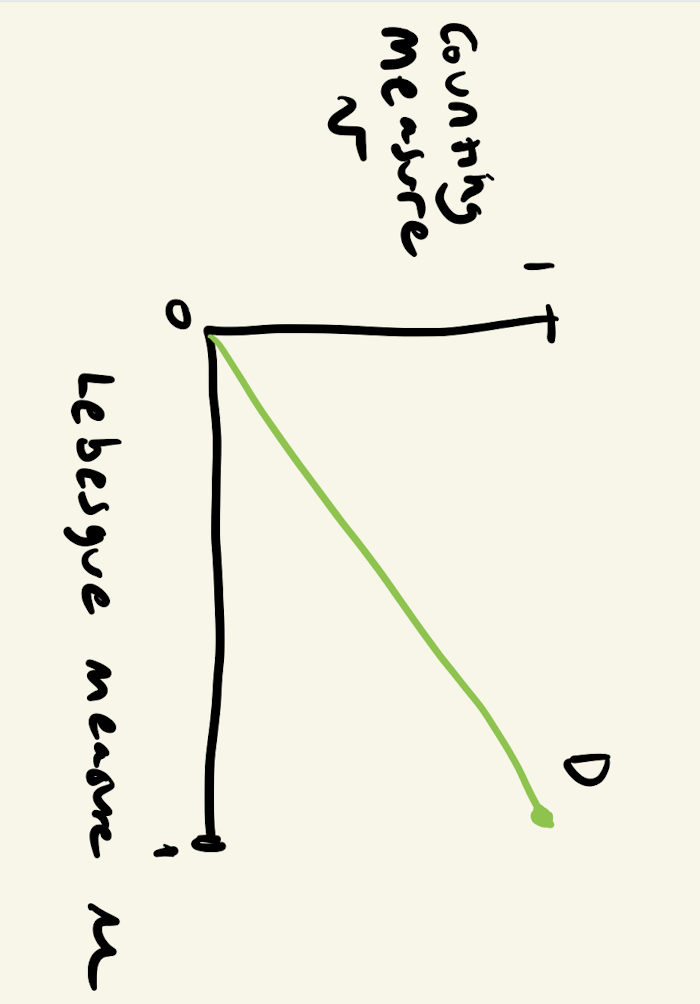 Counting
measure
ν
1
0
D
Lebesgue measure μ
1